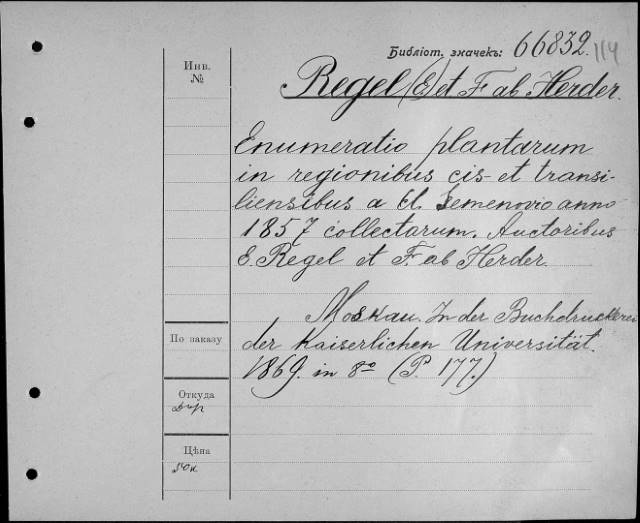 Библіот. значекъ: 66832. 114
Инв.
№
Regel (E) et F. ab Herder.
Enumeratio plantarum
in regionibus cis- et transi-
liensibus a cl. Semenovio anno
1857 collectarum. Auctoribus
E. Regel et F. ab Herder.
Moskau. In der Buchdruckerei
der Kaiserlichen Universität.
1869. in 8º (P. 177.)
По заказу
Откуда
Цѣна
50 к